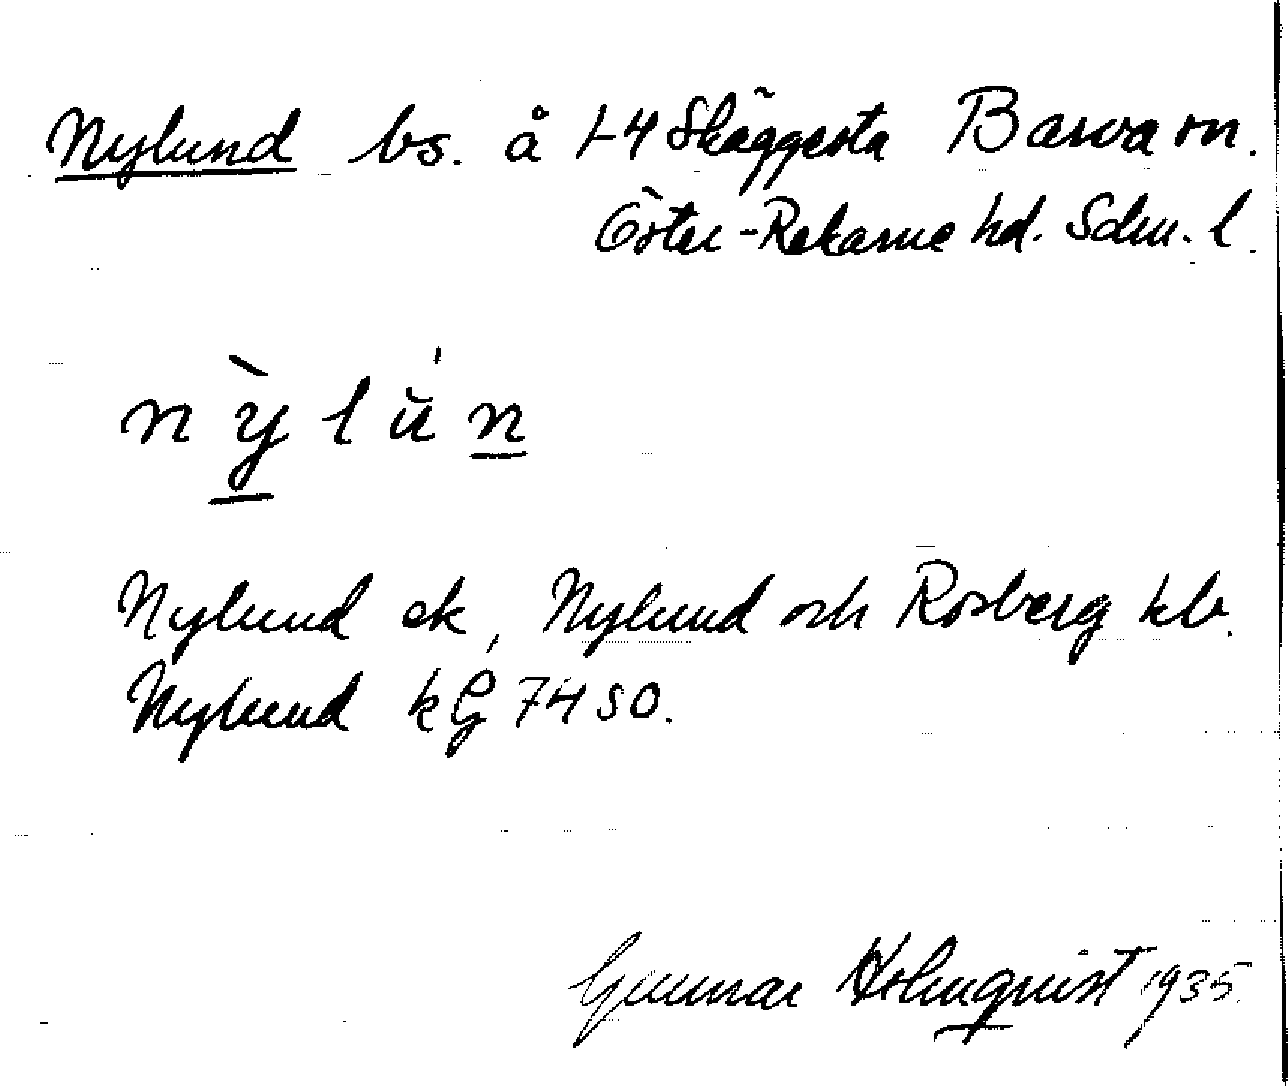 Nylund bs. å 1-4 Skäggesta Barva sn.
Öster-Rekarne hd. Sdm. l.
nỳlùn
Nylund ek, Nylund och Rosberg kb.
Nylund kG 7450.
Gunnar Holmqvist 1935.